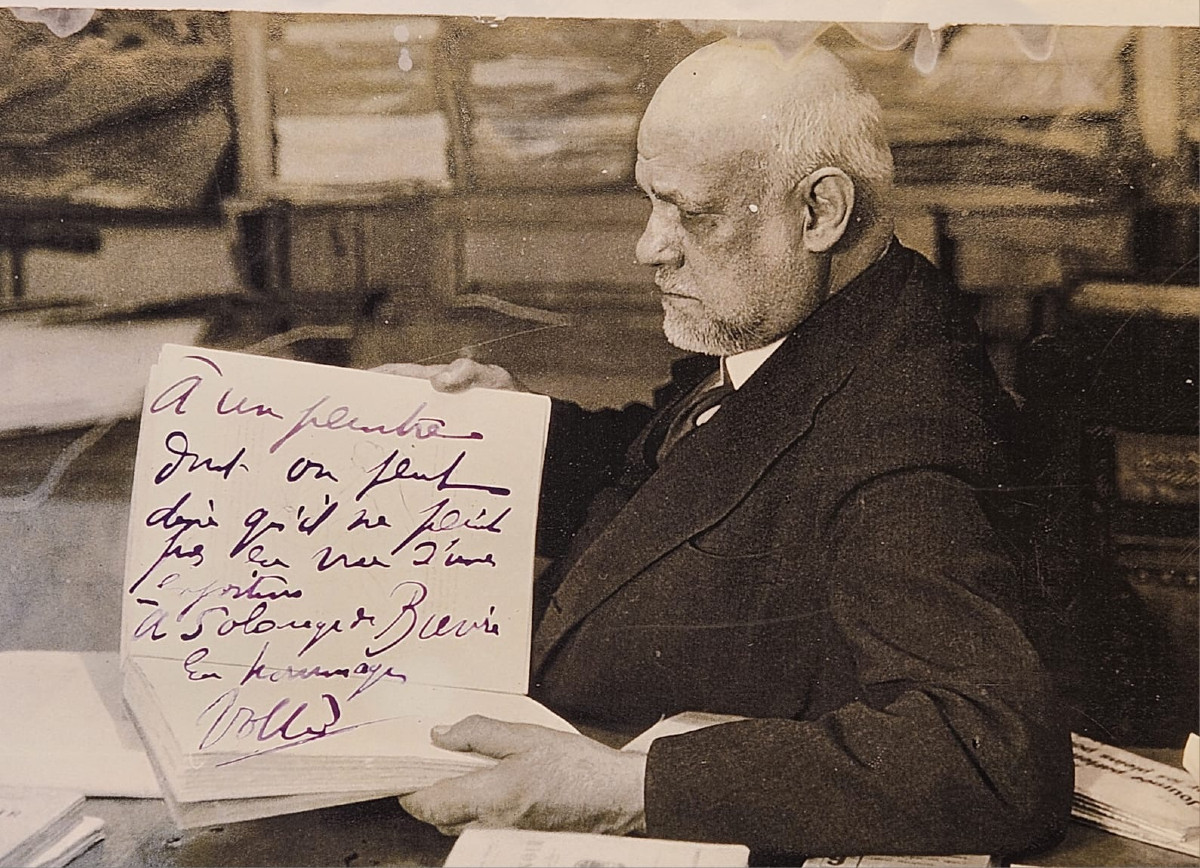 À un peintre
dont on peut
dire qu'il ne peint
pas en vue d'une
exposition
à Solange de Bièvre
en hommage
Vollard